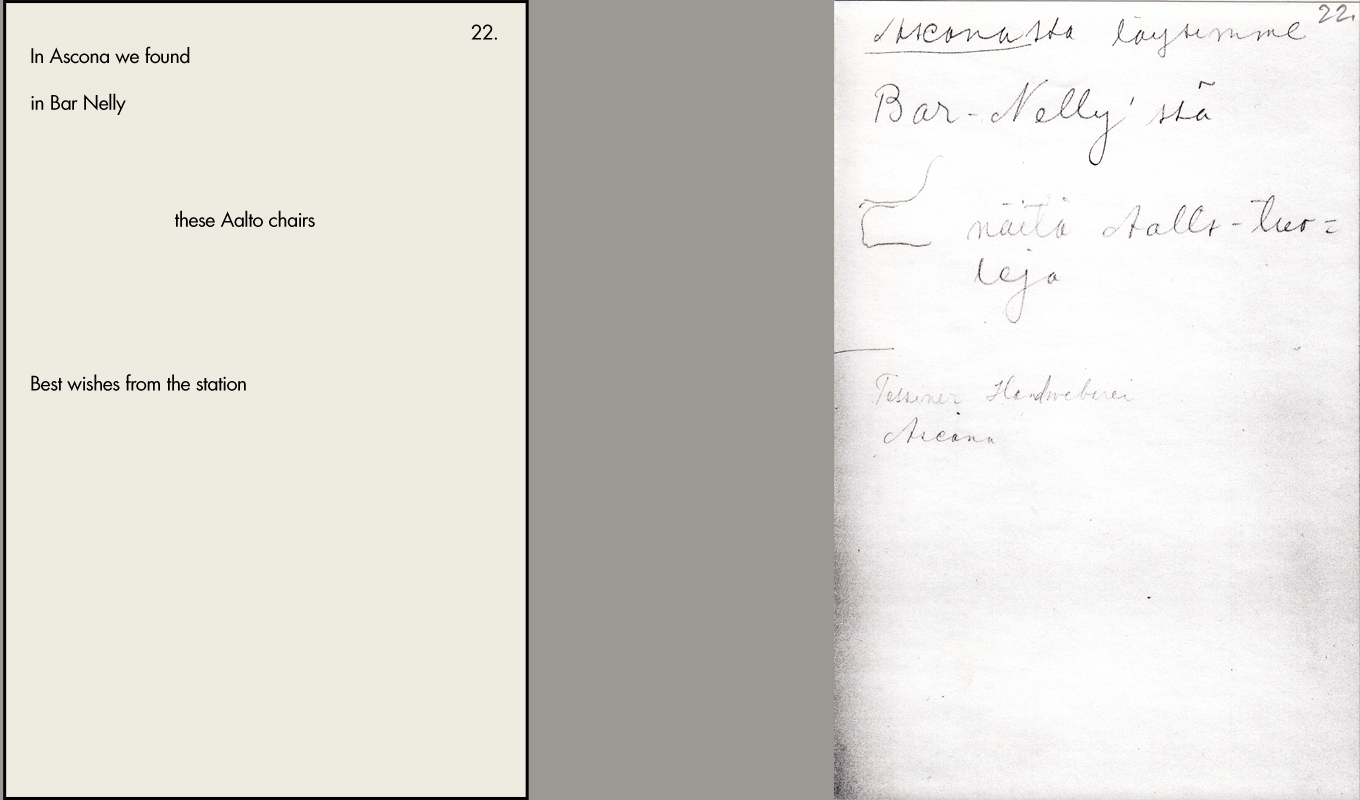 22.
In Ascona we found
in Bar Nelly
these Aalto chairs
Best wishes from the station
22.
Asconasta löysimme
Bar-Nelly'stä
näitä Aalto-tuo=
leja
Tessiner Handweberei
Ascona